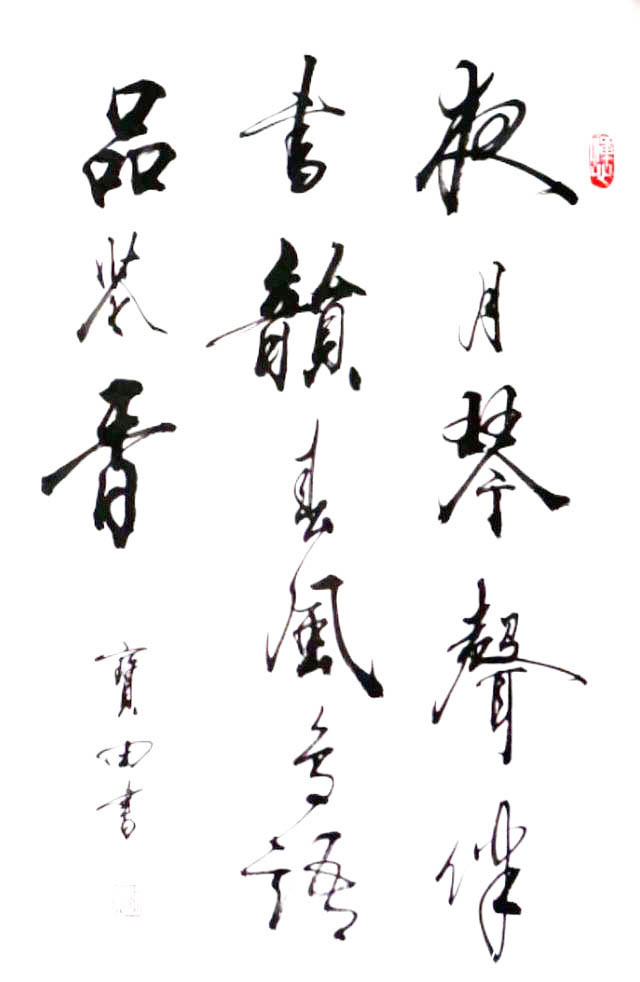 夜月琴聲伴
書韻春風鳥語
品茶香
寶由書